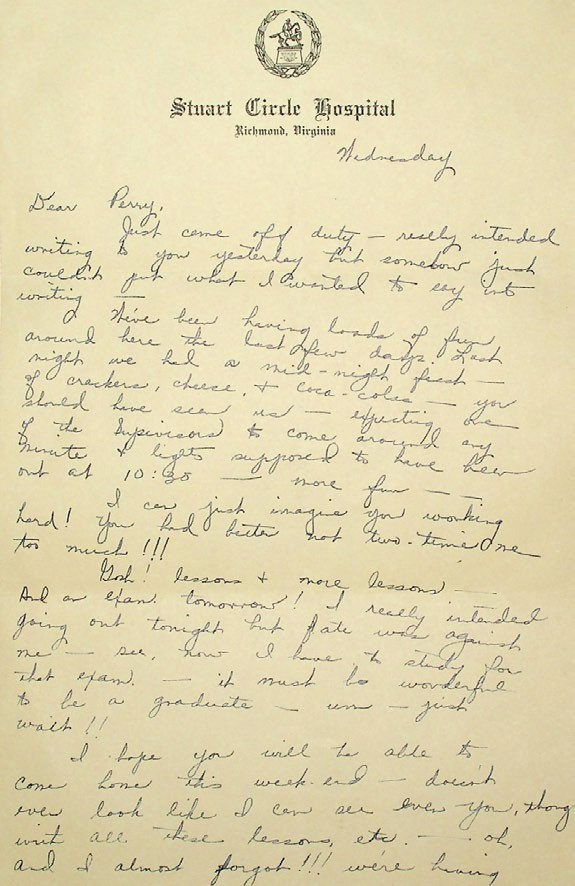 Stuart Circle Hospital
Richmond, Virginia
Wednesday
Dear Perry,
Just came off duty — really intended
writing to you yesterday but somehow just
couldn't put what I wanted to say into
writing —
We've been having loads of fun
around here the last few days. Last
night we had a mid-night feast —
of crackers, cheese, + coca-colas — you
should have seen us — expecting one
of the Supivisors to come around any
minute + lights supposed to have been
out at 10:30 — more fun — —
I can just imagine you working
hard! You had better not two-time me
too much!!!
Gosh! lessons + more lessons —
And an exam. tomorrow! I really intended
going out tonight but fate was against
me — see, now I have to study for
that exam. — it must be wonderful
to be a graduate — um — just
wait!!
I hope you will be able to
come home this week-end — doesn't
even look like I can see even you, thoug
wit all these lessons, etc. — oh,
and I almost forgot!!! we're having